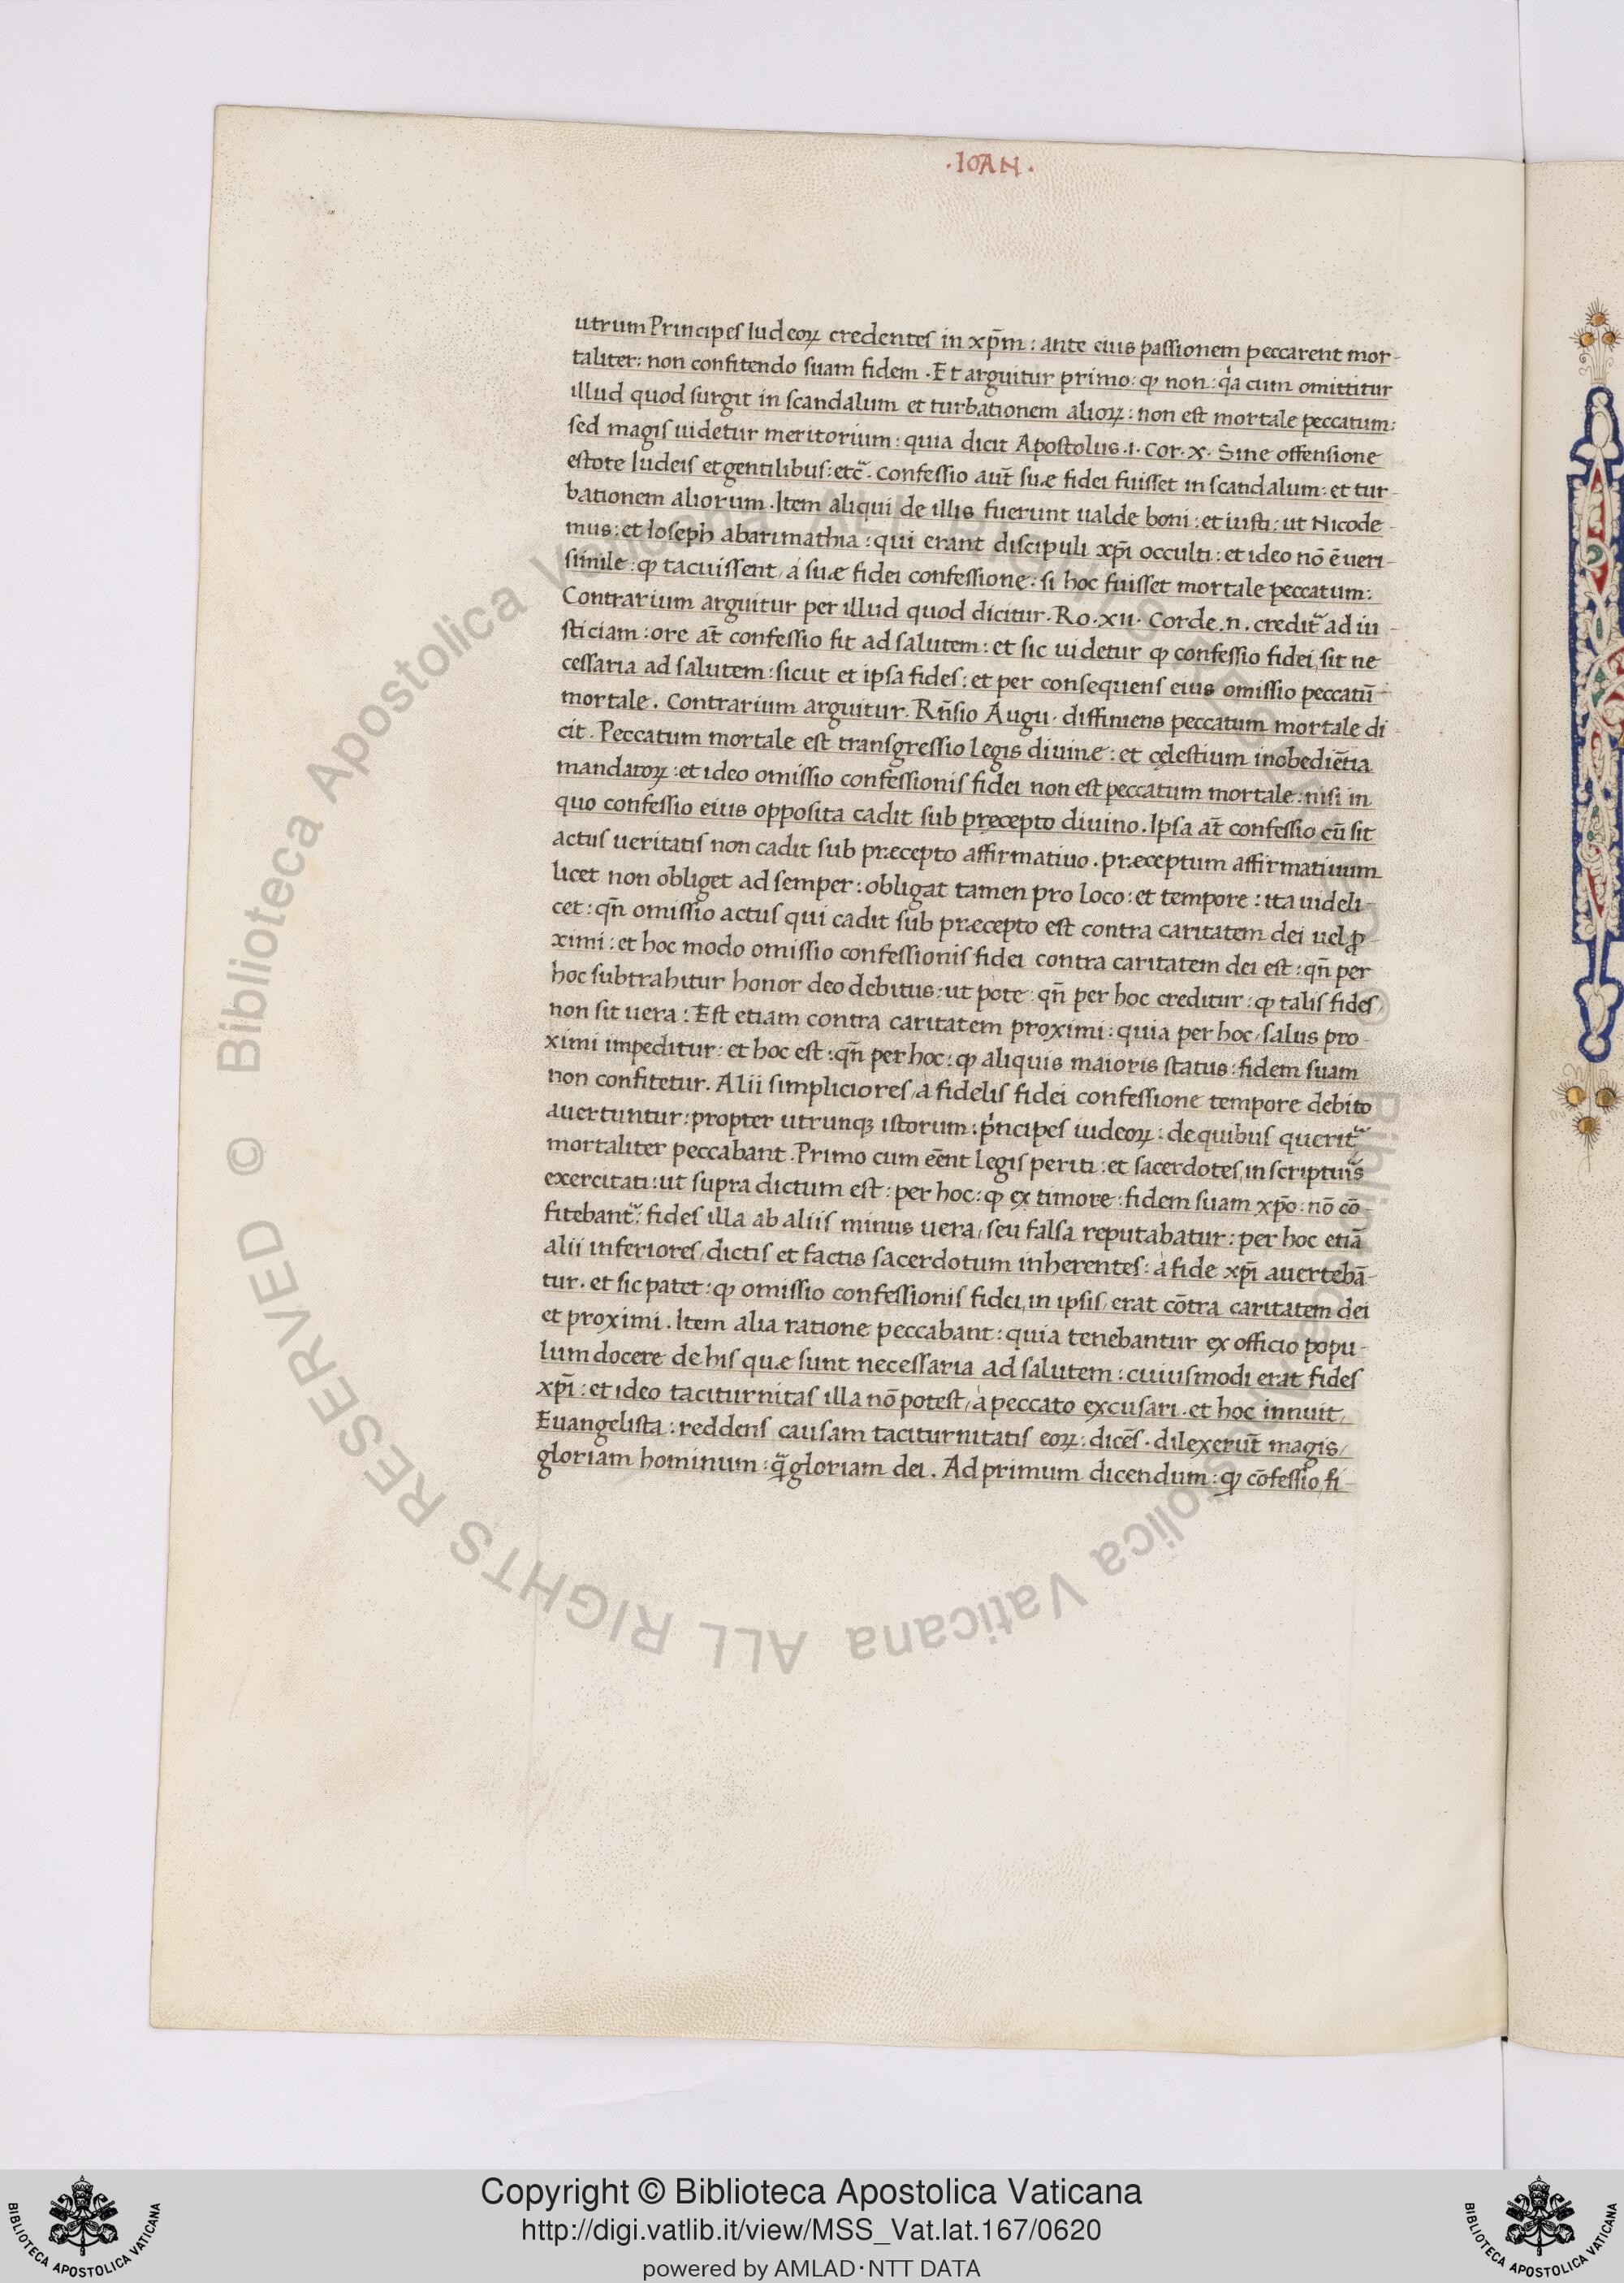 .IOAN.
utrum Principes Iudeoꝝ credentes in xp̄m : ante eius passionem peccarent mor-
taliter: non confitendo suam fidem . Et arguitur primo: ꝙ non : qͥa cum omittitur
illud quod surgit in scandalum et turbationem alioꝝ : non est mortale peccatum:
sed magis uidetur meritorium : quia dicit Apostolus .1. Cor. X. Sine offensione
estote Iudeis et gentilibus: etc̃. Confessio aut̄ suæ fidei fuisset in scandalum: et tur-
bationem aliorum . Item aliqui de illis fuerunt ualde boni : et iusti: ut Nicode-
mus: et Ioseph abarimathia : qui erant discipuli xp̄i occulti : et ideo nō ē ueri-
simile: ꝙ tacuissent, á suæ fidei confessione: si hoc fuisset mortale peccatum:
Contrarium arguitur per illud quod dicitur. Ro. xii. Corde .n. credit᷑ ad iu-
sticiam: ore at̄ confessio fit ad salutem: et sic uidetur ꝙ confessio fidei, sit ne
cessaria ad salutem: sicut et ipsa fides: et per consequens eius omissio peccatū-
mortale . Contrarium arguitur. Rn̄sio Augu. diffiniens peccatum mortale di
cit. Peccatum mortale est transgressio legis diuinæ: et cęlestium inobediētia
mandatoꝝ: et ideo omissio confessionis fidei non est peccatum mortale: nisi in
quo confessio eius opposita cadit sub pręcepto diuino . Ipsa at̄ confessio cū sit
actus ueritatis non cadit sub præcepto affirmatiuo . præceptum affirmatiuum
licet non obliget ad semper: obligat tamen pro loco: et tempore: ita uideli-
cet: qn̄ omissio actus qui cadit sub præcepto est contra caritatem dei uel ꝓ-
ximi: et hoc modo omissio confessionis fidei contra caritatem dei est: qn̄ per
hoc subtrahitur honor deo debitus: ut pote: qn̄ per hoc creditur: ꝙ talis fides,
non sit uera: Est etiam contra caritatem proximi: quia per hoc, salus pro-
ximi impeditur: et hoc est: qn̄ per hoc: ꝙ aliquis maioris status: fidem suam
non confitetur. Alii simpliciores, à fidelis fidei confessione tempore debito
auertuntur: propter utrunqꝫ istorum: pͥncipes iudeoꝝ: de quibus querit᷑
mortaliter peccabant. Primo cum eēnt legis periti: et sacerdotes, in scriptuis᷑
exercitati: ut supra dictum est: per hoc: ꝙ ex timore: fidem suam xp̄o: nō cō-
fitebant᷑: fides illa ab aliis minus uera, seu falsa reputabatur: per hoc etiā
alii inferiores, dictis et factis sacerdotum inherentes: à fide xp̄i auertebā-
tur. et sic patet: ꝙ omissio confessionis fidei, in ipsis, erat cōtra caritatem dei
et proximi. Item alia ratione peccabant: quia tenebantur ex officio popu-
lum docere de his quæ sunt necessaria ad salutem: cuiusmodi erat fides
xp̄i: et ideo taciturnitas illa nō potest, à peccato excusari. et hoc innuit,
Euangelista: reddens causam taciturnitatis eoꝝ: dicēs. dilexerūt magis,
gloriam hominum: q̃ gloriam dei. Ad primum dicendum: ꝙ cōfessio, fi-
© Biblioteca Apostolica Vaticana ALL RIGHTS RESERVED © Biblioteca Apostolica Vaticana ALL RIGHTS RESERVED
Copyright © Biblioteca Apostolica Vaticana
http://digi.vatlib.it/view/MSS_Vat.lat.167/0620
powered by AMLAD·NTT DATA
BIBLIOTECA APOSTOLICA VATICANA
BIBLIOTECA APOSTOLICA VATICANA